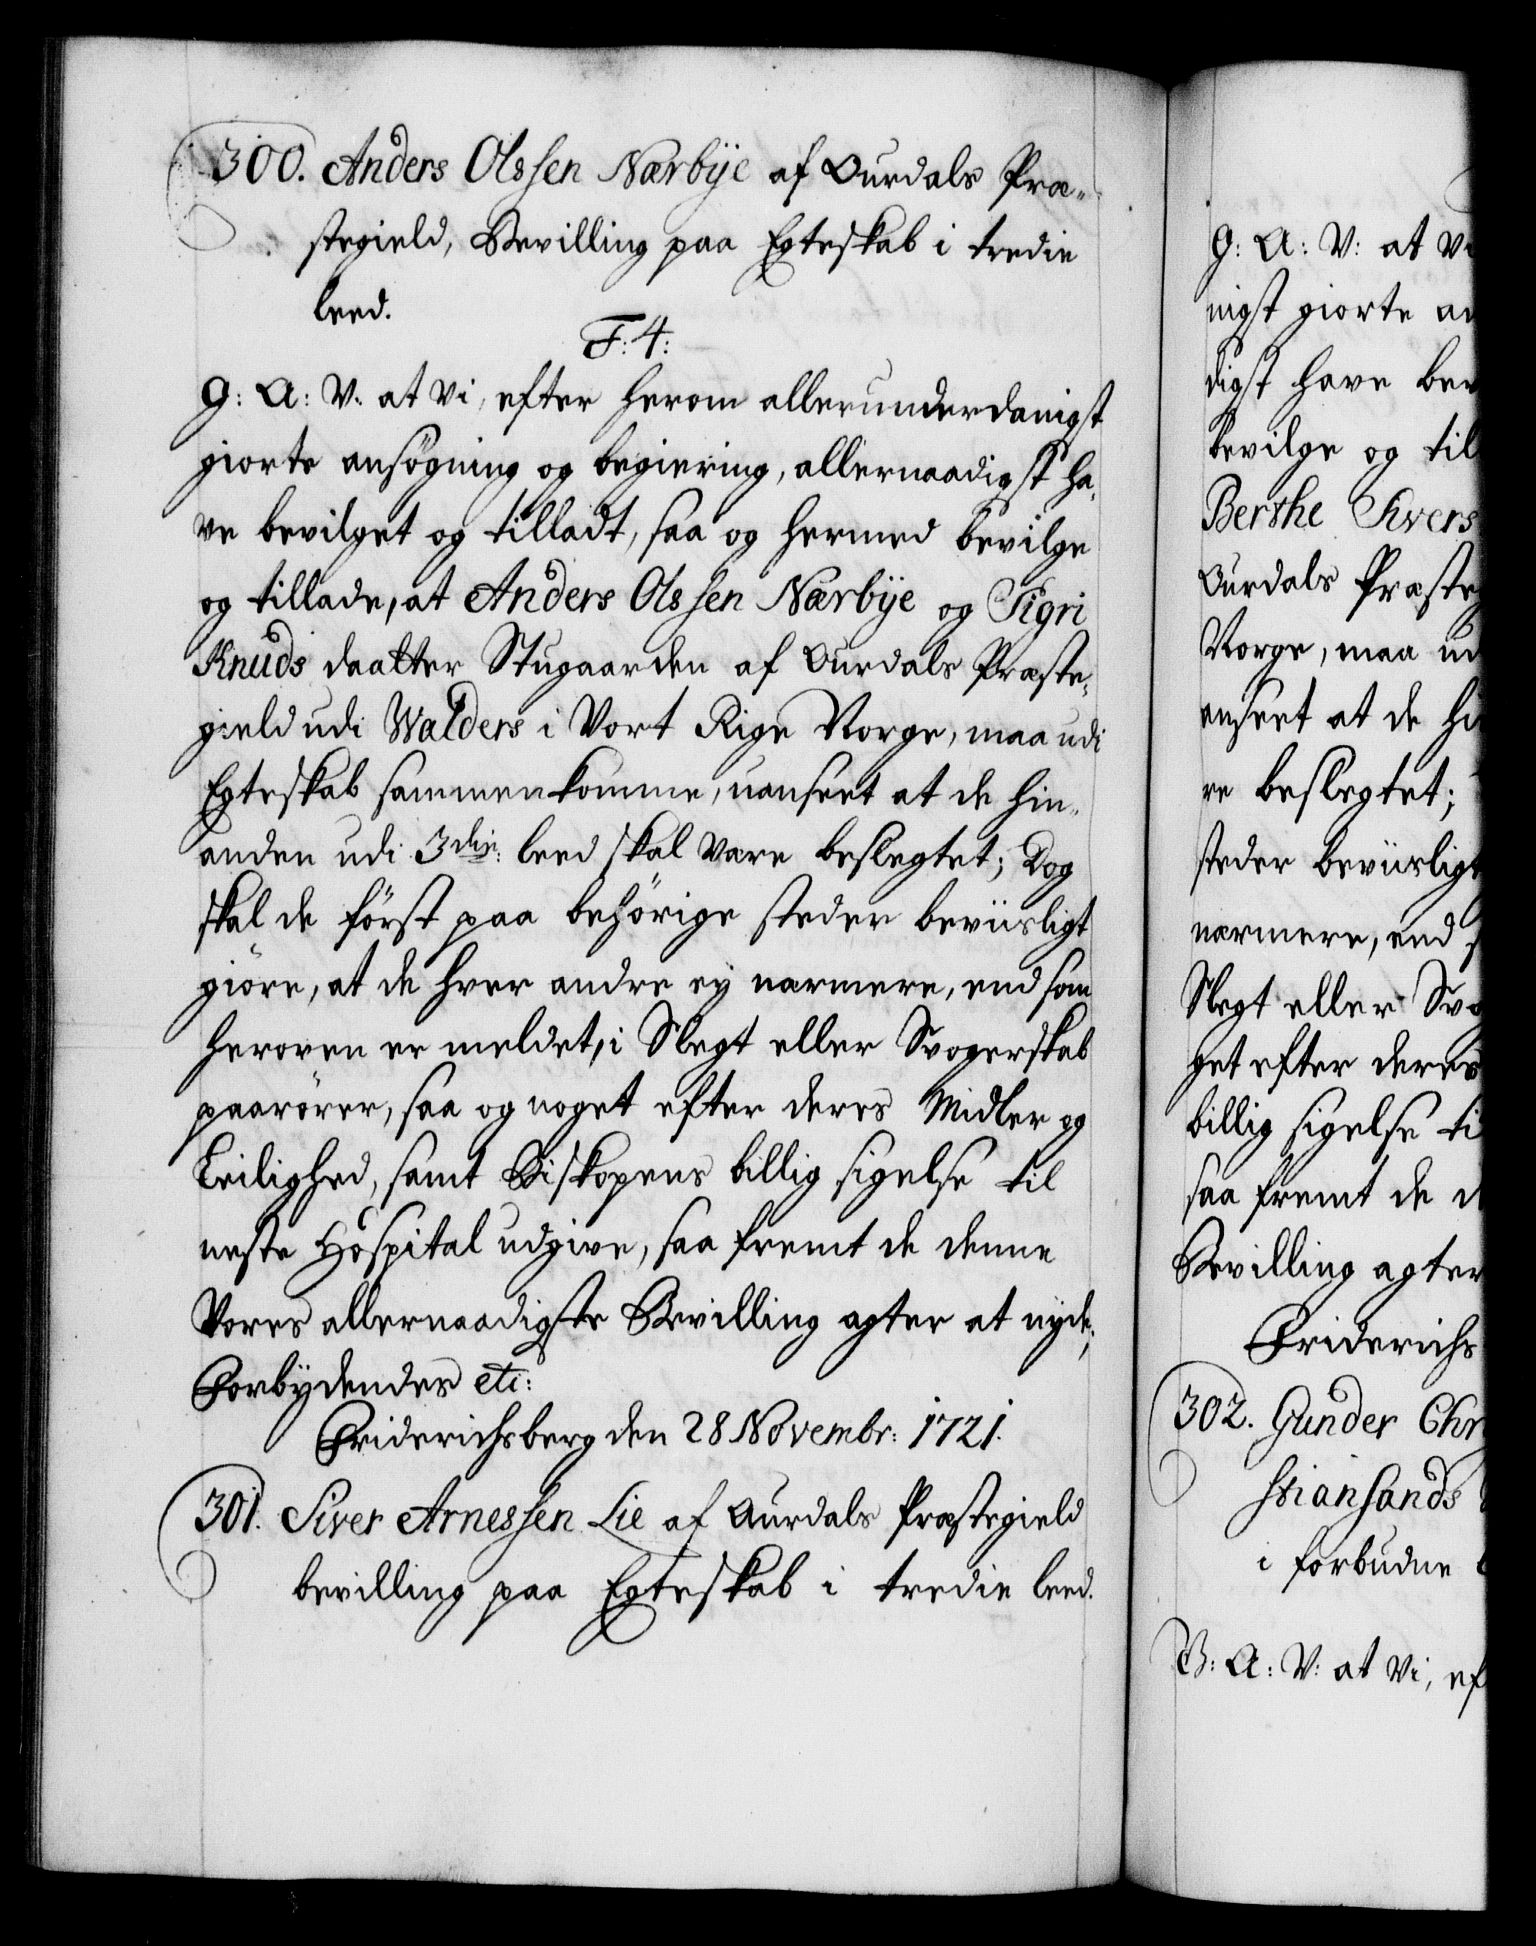 300. Anders Olssen Nærbÿe af Ourdals Præ-
stegield, Bevilling paa Egteskab i tredie
leed.
F: 4:
G: A: V: at Vi, efter herom allerunderdanigst
giorte ansøgning og begiering, allernaadigst ha,
ve bevilget og tilladt, saa og hermed bevilge
og tillade, at Anders Olssen Nærbÿe og Sigri
Knuds daatter Stugaarden af Ourdals Præste,
gield udi Walders i Vort Rige Norge, maa udi
Egteskab sammenkomme, uanseet at de hin,
anden udi 3die: leed skal være beslegtet; Dog
skal de först paa behörige steder beviisligt
giöre, at de hver andre ey nærmere, end som
heroven er meldet, i Slegt eller Svogerskab
paarörer, saa og noget efter deres Midler og
Leilighed, samt Biskopens billig sigelse til
neste Hospital udgive, saa fremt de denne
Vores allernaadigste Bevilling agter at nyde,
Forbydendes etc:
Friderichsberg den 28 Novembr: 1721.
301. Siver Arnessen Lie af Aurdals Præstegield
bevilling paa Egteskab i tredie leed.
G: A: V: at Vi
nigst giorte an
digst have bev
bevilge og til
Berthe Sivers
Ourdals Præsteg
Norge, maa ud
anseet at de hi
re beslegtet;
steder beviisligt
nærmere, end s
Slegt eller Svo
get efter deres
billig sigelse ti
saa fremt de d
Bevilling agter
Friderichs
302. Gunder Chr
stiansands
i forbudne
G: A: V: at Vi, ef